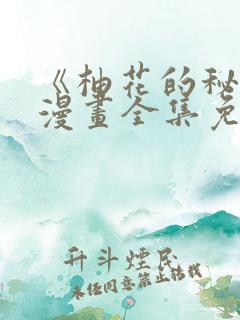 《柚花的秘
漫畫全集免
升斗煙民
未经同意禁止转载